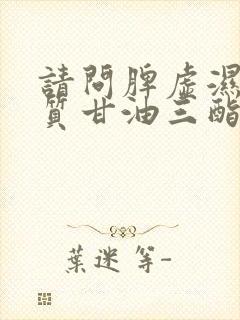 請問脾虛濕
質甘油三酯
葉迷等-